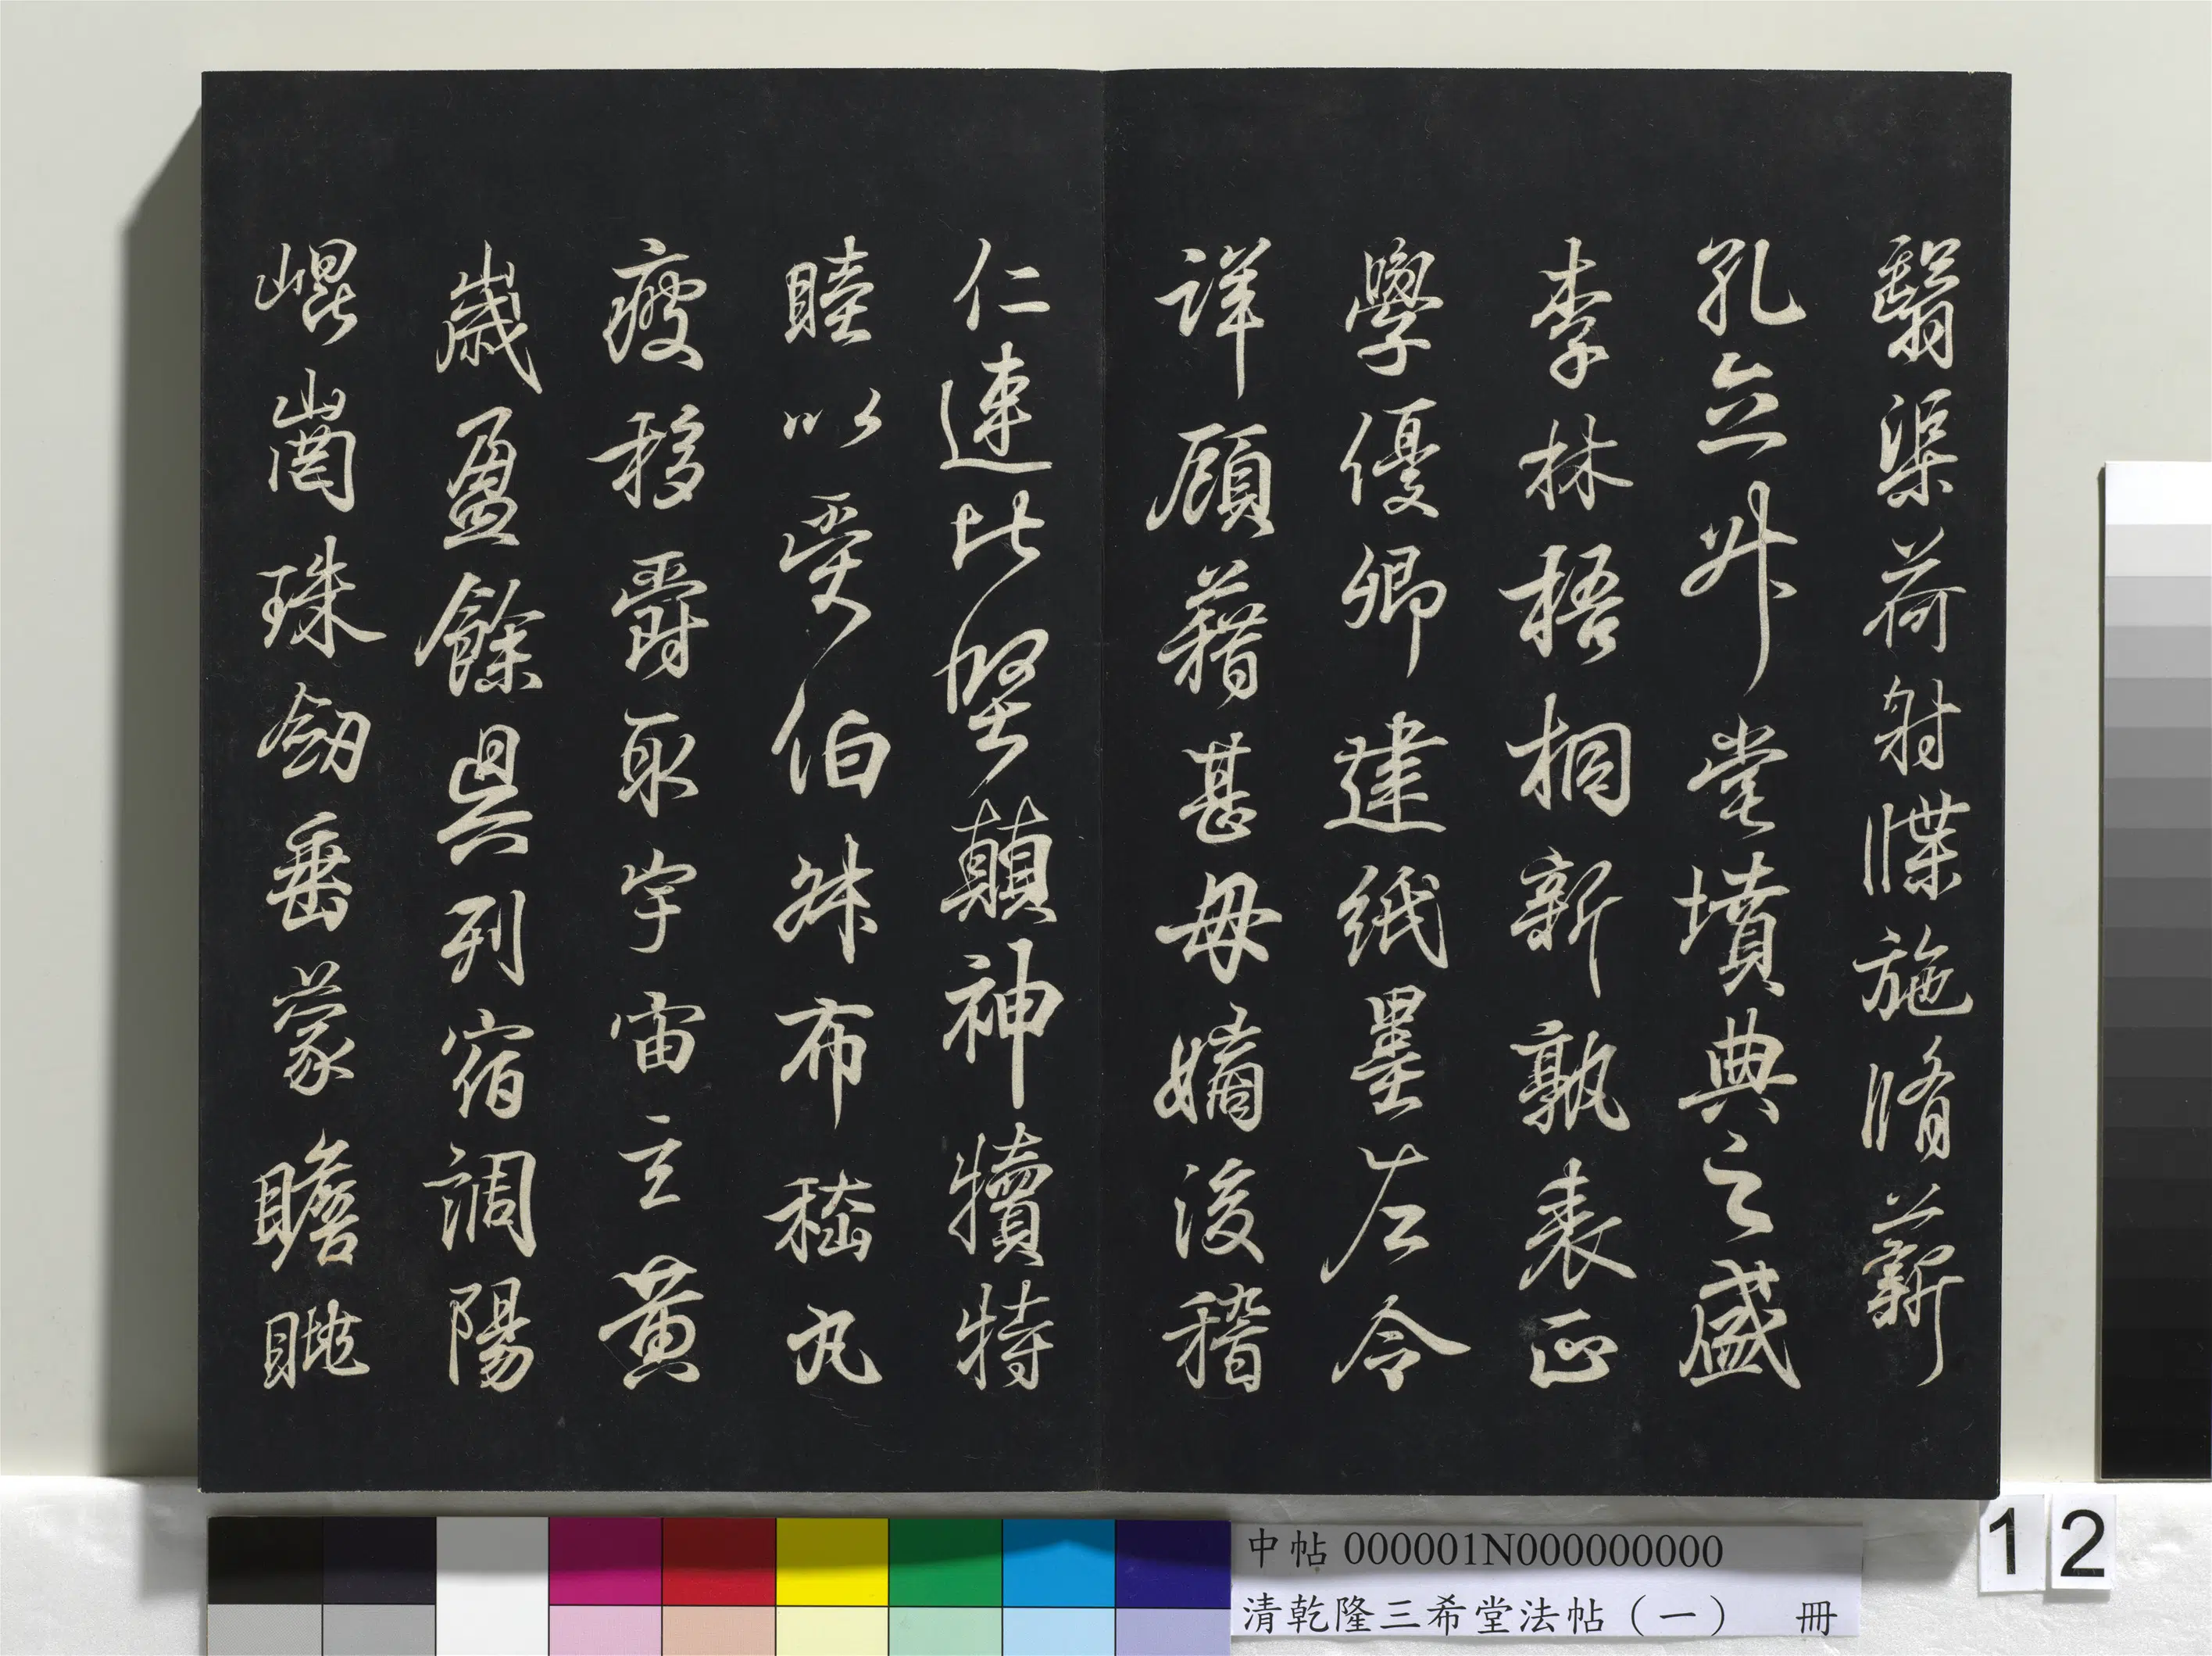 翳渠荷射牒施脩薪
孔立升堂墳典之盛
李林梧桐新孰表正
學優卿建紙墨左令
詳顧藉甚毋嫡後稽
仁連比堅顛神犢特
睦以受伯布嵇丸
疲移爵取宇宙玄黃
歲盈餘具列宿調陽
崐崗珠劒垂蒙瞻眺
中帖 000001N000000000
清乾隆三希堂法帖（一） 冊
12